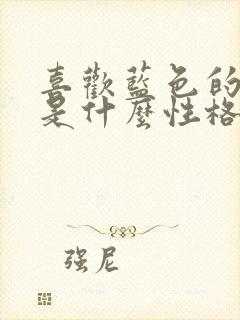 喜歡藍色的
是什麼性格
强尼